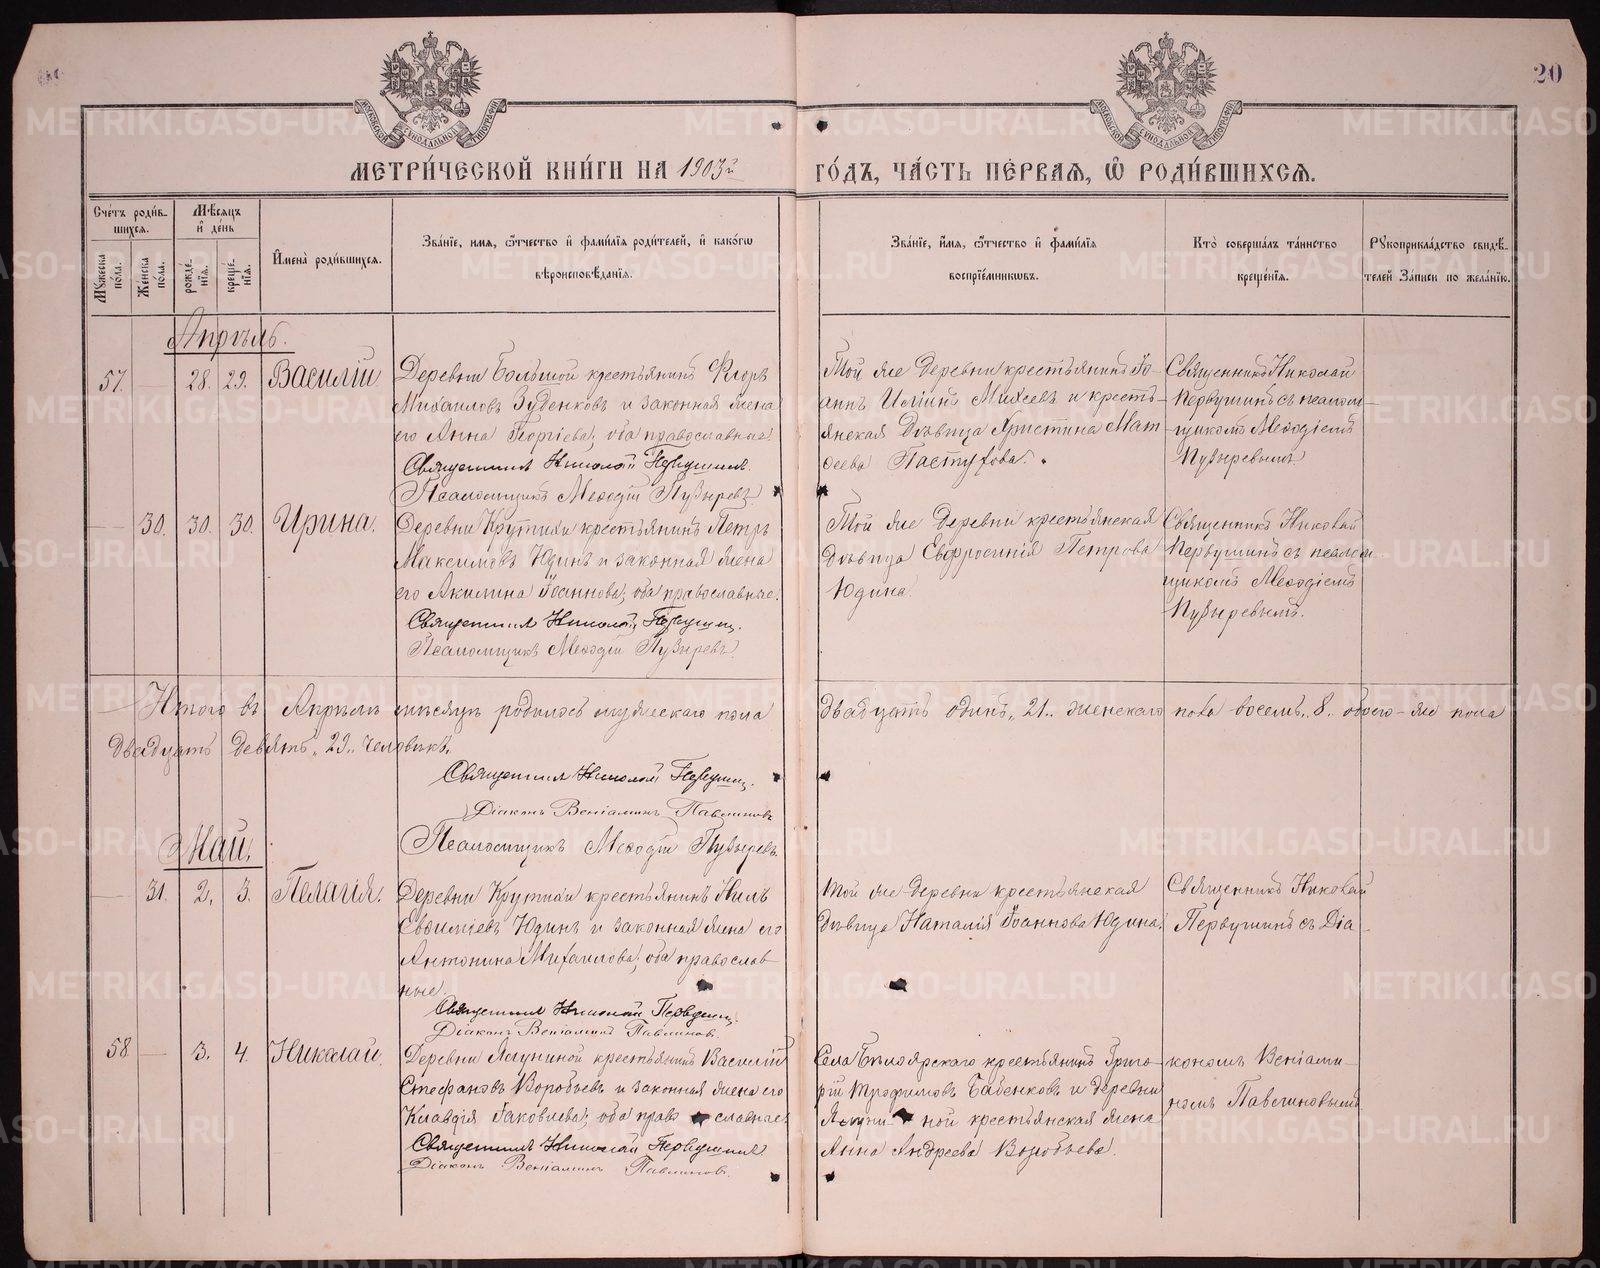 20
МЕТРИ́ЧЕСКОЙ КНИ́ГИ НА 1903й ГО́ДЪ, ЧА́СТЬ ПЕ́РВАѦ, Ѽ РОДИ́ВШИХСѦ.
Сче́тъ роди́в-
шихсѧ.
Мѣ́сѧцъ
и҆ де́нь
Мꙋ́жеска
по́ла.
Же́нска
по́ла.
рожде́-
нїѧ.
креще́-
нїѧ.
И҆мена̀ роди́вшихсѧ.
Зва́нїе, имѧ, ѻ҆́тчество и҆ фами́лїѧ роди́телей, и҆ како́гѡ
вѣроисповѣ́данїѧ.
Зва́нїе, и҆́мѧ, ѻ҆́тчество и҆ фами́лїѧ
воспрїе́мникѡвъ.
Кто̀ соверша́лъ та́инство
креще́нїѧ.
Рꙋкоприкла́дство свидѣ́-
телей За́писи по жела́нїю.
Апрѣль.
57. — 28. 29. Василій
Деревни Большой крестьянинъ Ѳеодръ
Михаиловъ Зуденковъ и законная жена
его Анна Георгіева; оба православные.
Священникъ Николай Первушинъ.
Псаломщикъ Меѳодій Пузыревъ
Той же деревни крестьянинъ Іо-
аннъ Илiинъ Михеевъ и кресть-
янская дѣвица Христина Мат-
ѳеева Пастухова.
Священникъ Николай
Первушинъ съ псалом-
щикомъ Меѳодіемъ
Пузыревымъ.
— 30. 30. 30. Ирина.
Деревни Крутихи крестьянинъ Петръ
Максимовъ Юдинъ и законная жена
его Акилина Іоаннова; оба православные.
Священникъ Николай Первушинъ.
Псаломщикъ Меѳодій Пузыревъ.
Той же деревни крестьянская
дѣвица Евфросинія Петрова
Юдина.
Священникъ Николай
Первушинъ съ псалом
щикомъ Меѳодіемъ
Пузыревымъ.
Итого въ Апрѣлѣ мѣсяцѣ родилось мужескаго пола двадцать одинъ „21„ женскаго пола восемь „8„ обоего-же пола
двадцать девять „29„ человѣкъ.
Священникъ Николай Первушинъ.
Діаконъ Веніаминъ Павлиновъ
Псаломщикъ Меѳодій Пузыревъ.
Май.
— 31. 2. 3. Пелагія.
Деревни Крутихи крестьянинъ Нилъ
Евѳиміевъ Юдинъ и законная жена его
Антонина Михаилова; оба православ-
ные.
Священникъ Николай Первушинъ.
Діаконъ Веніаминъ Павлиновъ.
Той же деревни крестьянская
дѣвица Наталія Іоаннова Юдина.
Священникъ Николай
Первушинъ съ Діа
58 — 3. 4. Николай.
Деревни Ялуниной крестьянинъ Василій
Стефановъ Воробьевъ и законная жена его
Клавдія Іаковлева; оба православные
Священникъ Николай Первушинъ
Діаконъ Веніаминъ Павлиновъ.
Села Бѣлоярскаго крестьянинъ Григо-
рій Трофимовъ Бабенковъ и деревни
Ялуни-ной крестьянская жена
Анна Андреева Воробьева.
кономъ Веніами-
номъ Павлиновымъ
METRIKI.GASO-URAL.RU